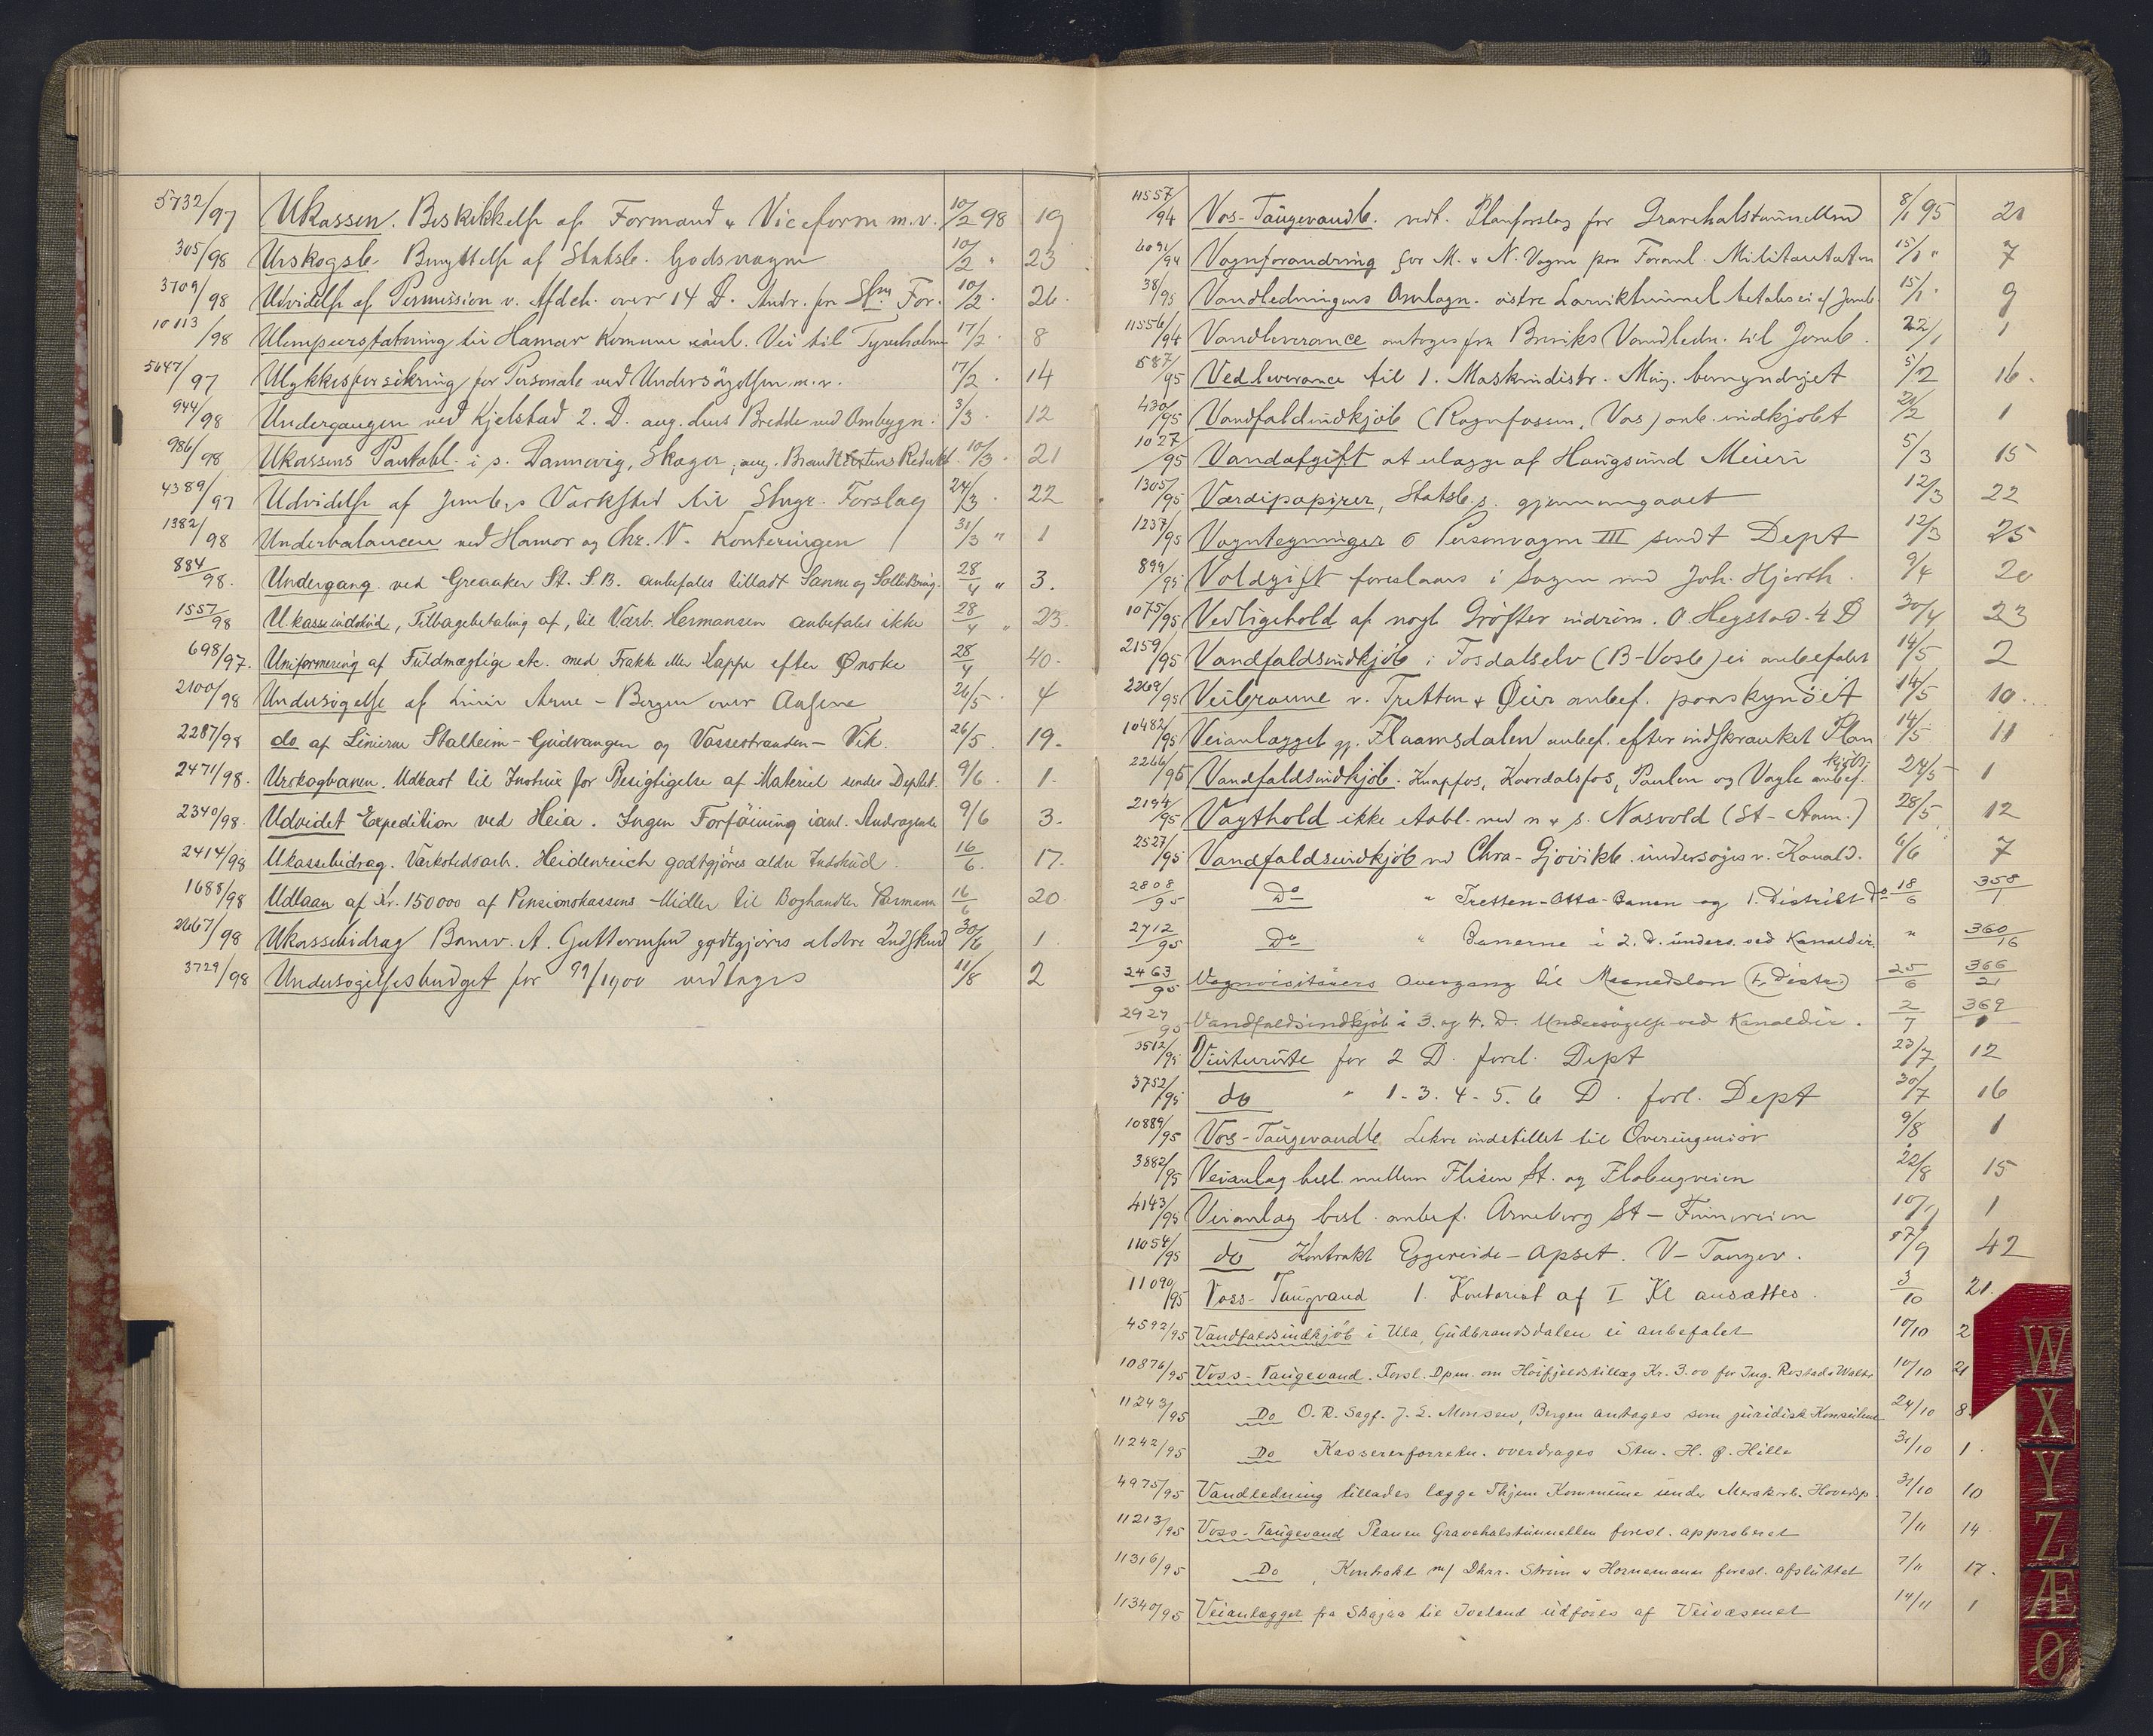 5732/97 Ukassen. Beskikkelse af Formand & Viceform m.v. 10/2 98 19
305/98 Urskogsb. Benyttelse af Statsb. Godsvogne 10/2 " 23
3709/98 Udvidelse af Permission v. Afdeh. over 14 D. Andr. fra Stm For. 10/2 . 26.
10113/98 Ulempeerstatning til Hamar Komune Vei til 17/2 . 8
5647/97 Ulykkesforsikring for Personale ved Undersögelsen m.v. 17/2 . 14
944/98 Undergangen ved Kjelstad 2. D. ang. dens Bredde ved Ombygn. 3/3 . 12
986/98 Ukassens Pantobl. i s. Dannevig, Skoger, ang. 10/3 . 21
4389/97 Udvidelse af Jernb.s Værksted Forslag 24/3 . 22
1382/98 Underbalancen ved Hamar og Chr. V. Konteringen 31/3 " 1
884/98. Undergang ved Greaaker St. S.B. anbefales tilladt Sanne og Solli Brug. 28/4 " 3.
1557/98 U.kasseindskud, Tilbagebetaling af, til Værb. Hermansen anbefales ikke 28/4 " 23.
698/97. Uniformering af Fuldmægtige etc. med Frakke eller Kappe efter Ønske 28/4 40.
2100/98 Undersögelse af Linie Arne – Bergen over 26/5 . 4
2287/98 do af Linierne Stalheim – Gudvangen og Vossestranden – Vik. 26/5 . 19.
2471/98. Urskogbanen. Udkast til Instrux for Besigtigelse af Materiel sendes Deptet. 9/6 . 1.
2340/98. Udvidet Expedition ved Heia. Ingen Forföining ianl. Andragende 9/6 3.
2414/98 Ukassebidrag. Værkstedsarb. Heidenreich godtgjöres ældre Indskud. 16/6. 17.
1688/98 Udlaan af Kr. 150000 af Pensionskassens Midler til Boghandler 16/6 20.
2667/98 Ukassebidrag Banev. A. Guttormsen godtgjöres ældre Indskud 30/6 1
3729/98 Undersögelsesbudget for 99/1900 vedtages 11/8 2
11557/94 Vos-Taugevandb. vedt. Planforslag for Gravehalstunnellen 8/1 95 21
4091/94 Vognforandring for M. & N. Vogne paa Foranl. Militæretaten 15/1 " 7
38/95 Vandledningens Omlægn. östre Larviktunnel betales ei af Jernb. 15/1 " 9
11556/94 Vandleverance antages fra Breviks Vandledn. til Jernb. 22/1 1
587/95 Vedleverance til 1. Maskindistr. Ming. bemyndiget 5/2 16.
430/95 Vandfaldindkjöb (Rognfossen, Vos) anb. indkjöbt 21/2 1
1027/95 Vandafgift at erlægge af Haugsund Meieri 5/3 15
1305/95 Værdipapirer, Statsb.s. gjennemgaaet 12/3 22
1237/95 Vogntegninger 6 Personvogne III sendt Dept 12/3 25
899/95 Voldgift foreslaaes i Sagen med Joh. Hjorth. 9/4 20
1075/95 Vedligehold af nogle Gröfter O. Hegstad. 4 D 30/4 23
2159/95 Vandfaldsindkjöb i Fosdalselv (B-Vosb) ei anbefalet 14/5 2
2269/95 Veibroerne v. Tretten & Øier anbef. paaskyndet 14/5 10.
10482/95 Veianlægget gj. Flaamsdalen anbef. efter indskrænket Plan 14/5 11
2266/95 Vandfaldsindkjöb. Knapfos, Kaardalsfos, Paulen og Vagle anbef. kjöbt 24/5 1
2194/95 Vagthold ikke etabl. ved n & s. Næsvold (St-Aam.) 28/5 12
2527/95 Vandfaldsindkjöb ved Chra-Gjövikb. undersöges v. Kanald. 6/6 7
2808/95 Do " Tretten-Otta-Banen og 1. Distrikt Do 18/6 358/1
2712/95 Do " Banerne i 2. D. unders. ved Kanaldir. " 360/16
2463/95 Vognvisitörers Overgang til Maanedslön (1. Distr.) 25/6 366/21
2927/95 Vandfaldsindkjöb i 3. og 4. D. Undersögelse ved Kanaldir. 2/7 369/1
3512/95 Vinterrute for 2 D. forel. Dept 23/7 12
3752/95 do " 1-3. 4-5. 6 D. forl. Dept 30/7 16
10889/95 Vos-Taugevandb. Lekve indstillet til Overingeniör 9/8 1
3882/95 Veianlæg besl. mellem Flisen St. og Flobergveien 22/8 15
4143/95 Veianlæg besl. anbef. Arneberg St – Finnveien 10/9 1
11054/95 do Kontrakt Eggereide – Opset. V – Taugev. 17/9 42
11090/95 Voss-Taugvand 1. Kontorist af I Kl ansættes. 3/10 21.
4592/95 Vandfaldsindkjöb i Ula, Gudbrandsdalen ei anbefalet 10/10 2
10876/95 Voss-Taugevand. Forsl. Dpm. om Höifjeldstillæg Kr. 3.00 for Ing. Rostad & Walt 10/10 21
11243/95 Do O.R. Sagf. J. L. Monsen, Bergen antages som juridisk Konsulent 24/10 8.
11242/95 Do Kassererforretn. overdrages Stm. H. Hille 31/10 1.
4975/95 Vandledning tillades lægge Thjem Kommune under Merakerb. Hovedsp. 31/10 10
11213/95 Voss-Taugevand Planen Gravehalstunnellen foresl. approberet 7/11 14
11316/95 Do, Kontrakt m/ Dhrr. Ström & Hornemann foresl. afsluttet 7/11 17.
11340/95 Veianlægget fra Skajaa til Iveland udföres af Veivæsenet 14/11 1
W
X
Y
Z
Æ
Ø